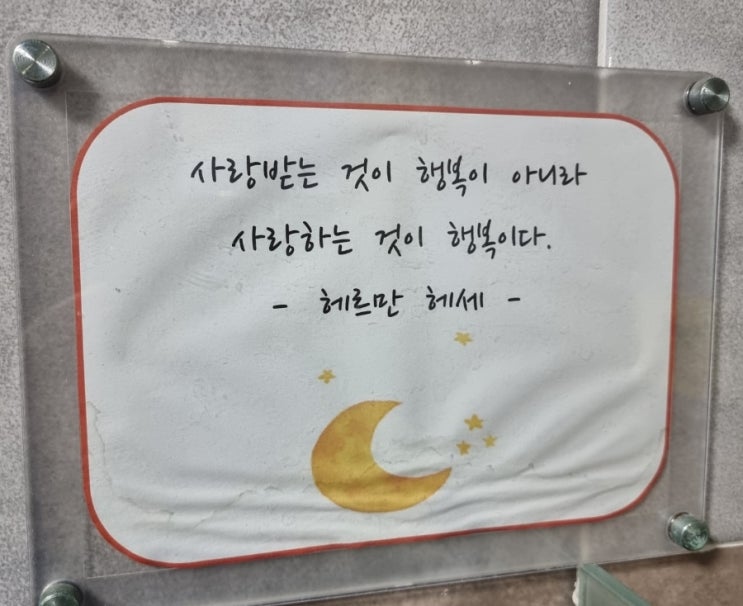 사랑받는 것이 행복이 아니라
사랑하는 것이 행복이다.
- 헤르만 헤세 -